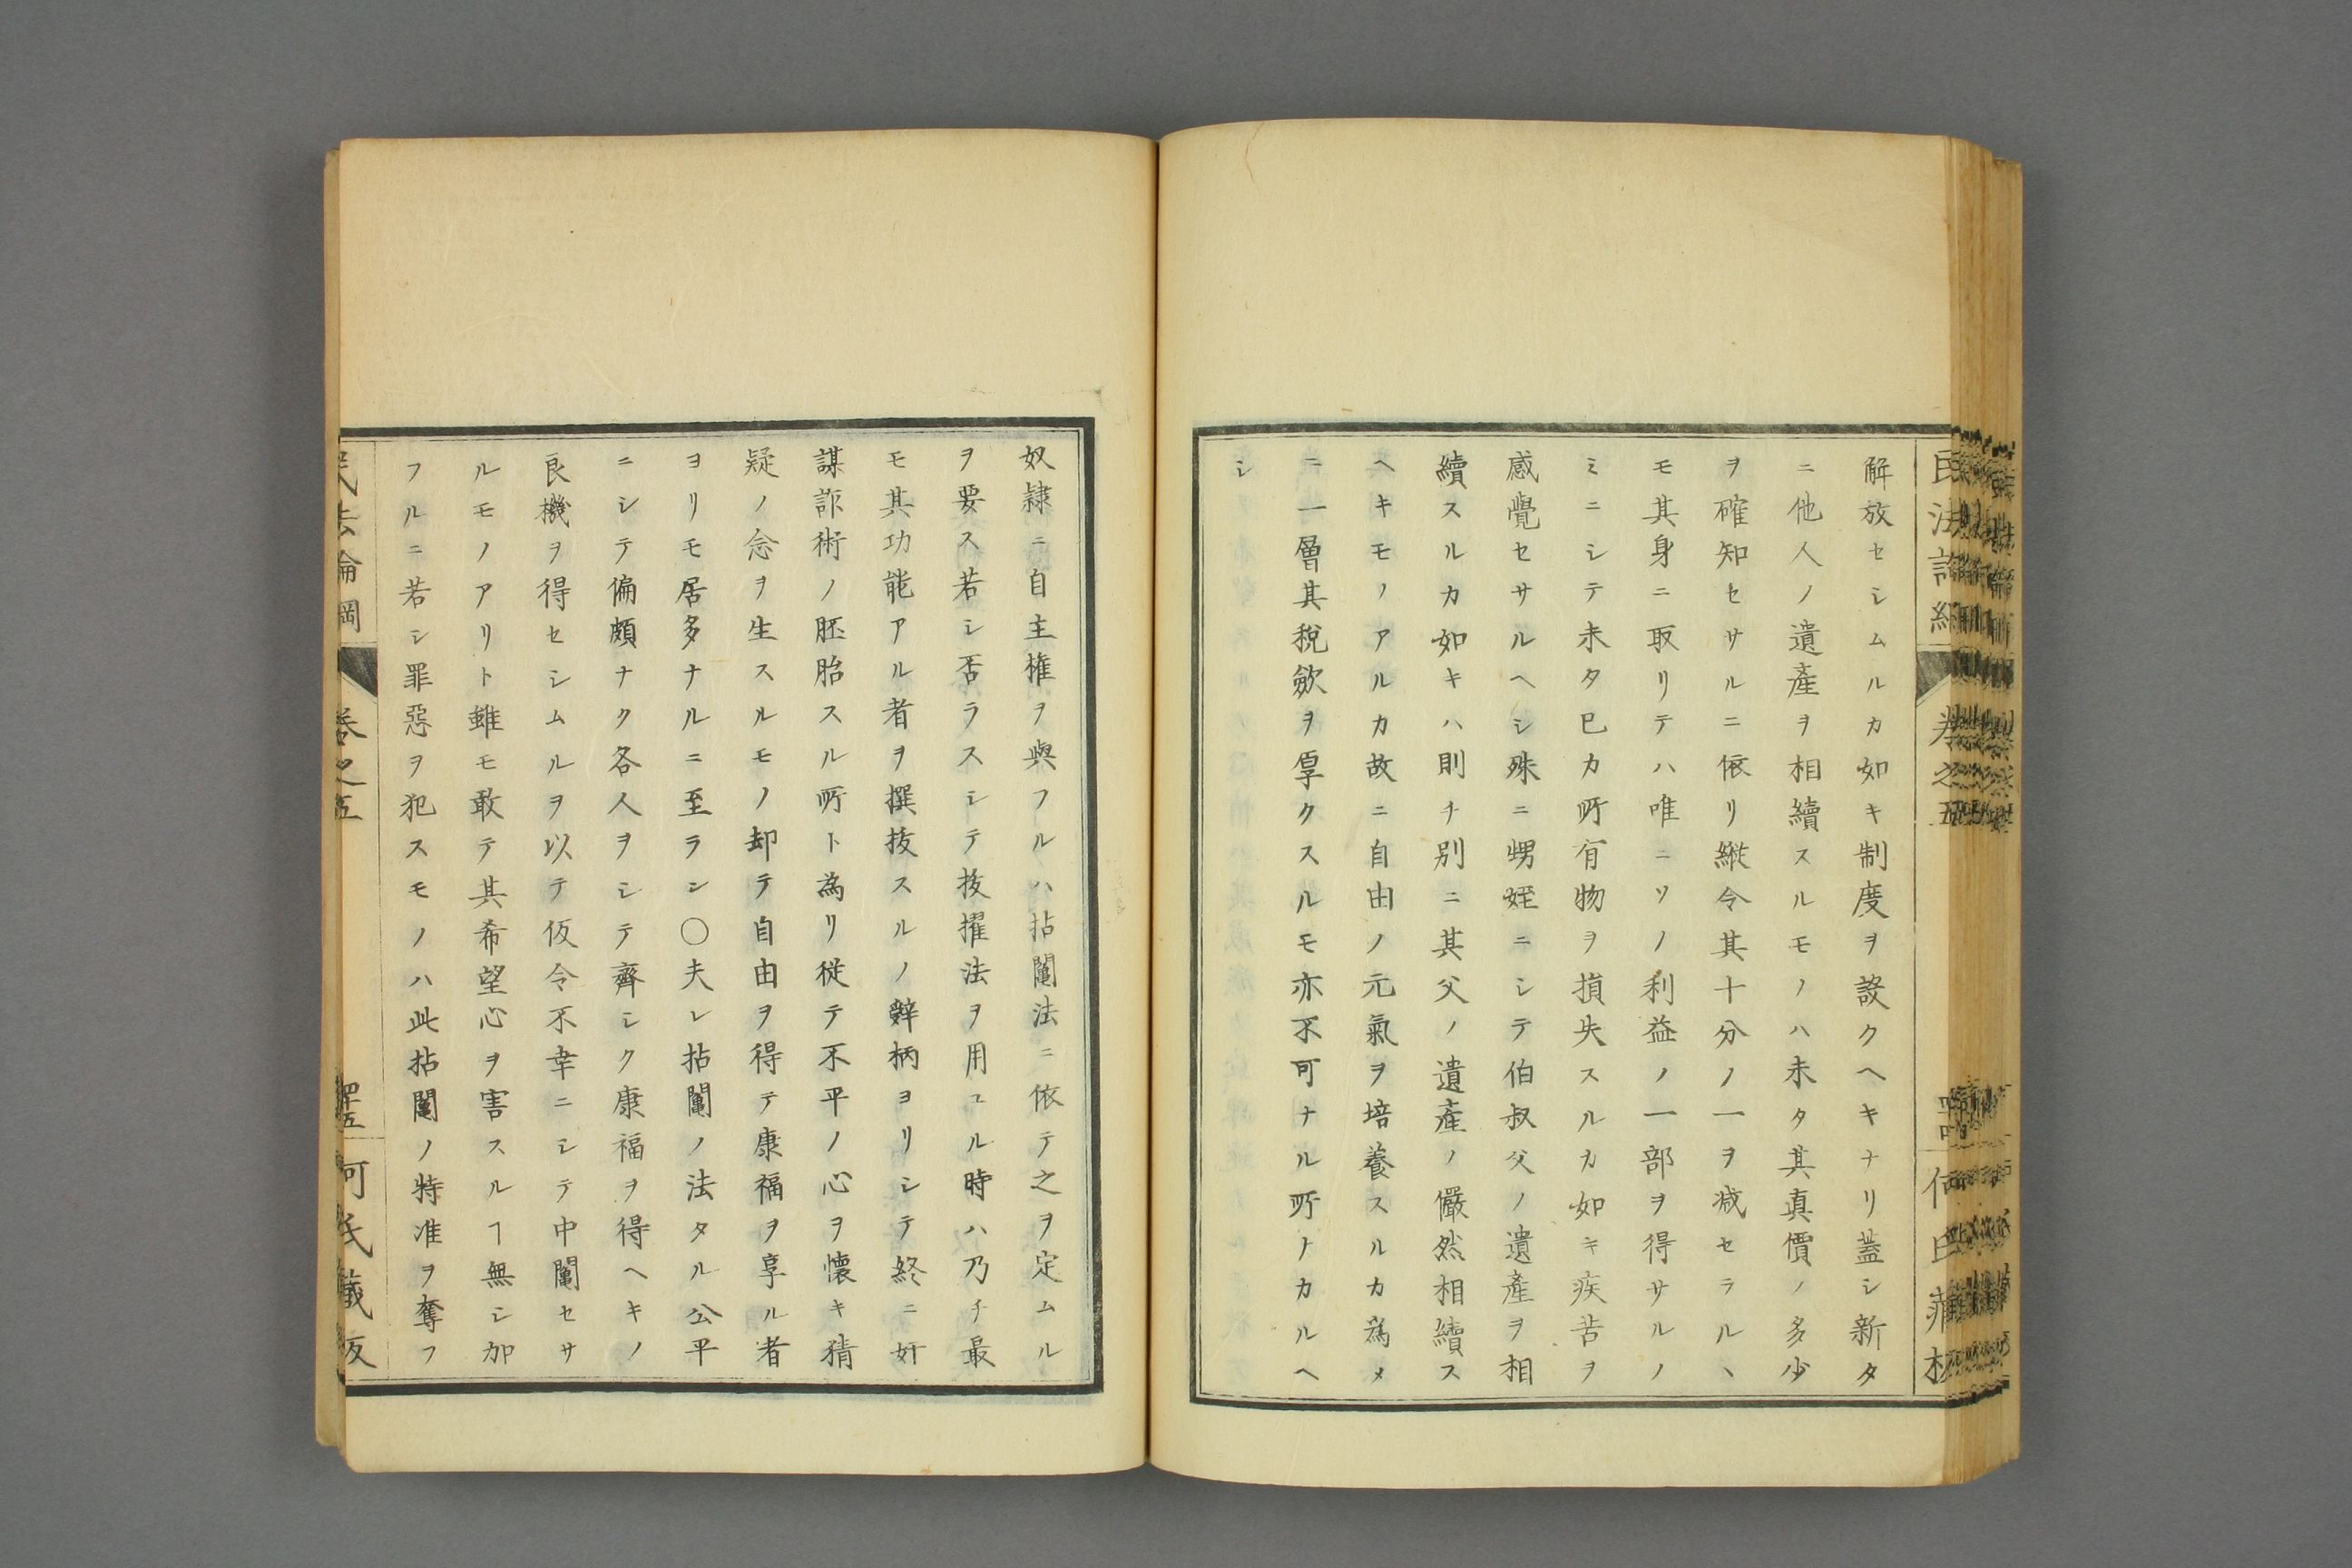 解放セシムルカ如キ制度ヲ設クヘキナリ蓋シ新タ
ニ他人ノ遺產ヲ相續スルモノハ未タ其真價ノ多少
ヲ確知セサルニ依リ縱令其十分ノ一ヲ减セラルヽ
モ其身ニ取リテハ唯ニソノ利益ノ一部ヲ得サルノ
ミニシテ未タ已カ所有物ヲ損失スルカ如キ疾苦ヲ
感覺セサルヘシ殊ニ甥姪ニシテ伯叔父ノ遺產ヲ相
續スルカ如キハ則チ別ニ其父ノ遺產ノ儼然相續ス
ヘキモノアルカ故ニ自由ノ元氣ヲ培養スルカ為メ
ニ一層其稅斂ヲ厚クスルモ亦不可ナル所ナカルヘ
シ
奴隷ニ自主権ヲ與フルハ拈鬮法ニ依テ之ヲ定ムル
ヲ要ス若シ否ラスシテ抜擢法ヲ用ユル時ハ乃チ最
モ其功能アル者ヲ撰抜スルノ辭柄ヨリシテ終ニ奸
謀詐術ノ胚胎スル所ト為リ従テ不平ノ心ヲ懷キ猜
疑ノ念ヲ生スルモノ却テ自由ヲ得テ康福ヲ享ル者
ヨリモ居多ナルニ至ラン〇夫レ拈鬮ノ法タル公平
ニシテ偏頗ナク各人ヲシテ齊シク康福ヲ得ヘキノ
良機ヲ得セシムルヲ以テ仮令不幸ニシテ中鬮セサ
ルモノアリト雖モ敢テ其希望心ヲ害スルヿ無シ加
フルニ若シ罪惡ヲ犯スモノハ此拈鬮ノ特准ヲ奪フ
民法論綱
巻之五
四十五
何氏蔵版